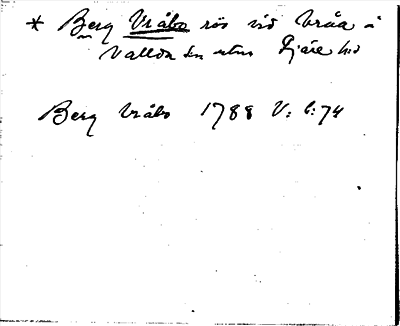 * Berg Vråbo rös vid Vråa i
Vallda sn utm Fjäre hd
Berg Vråbo 1788 V: 6:74